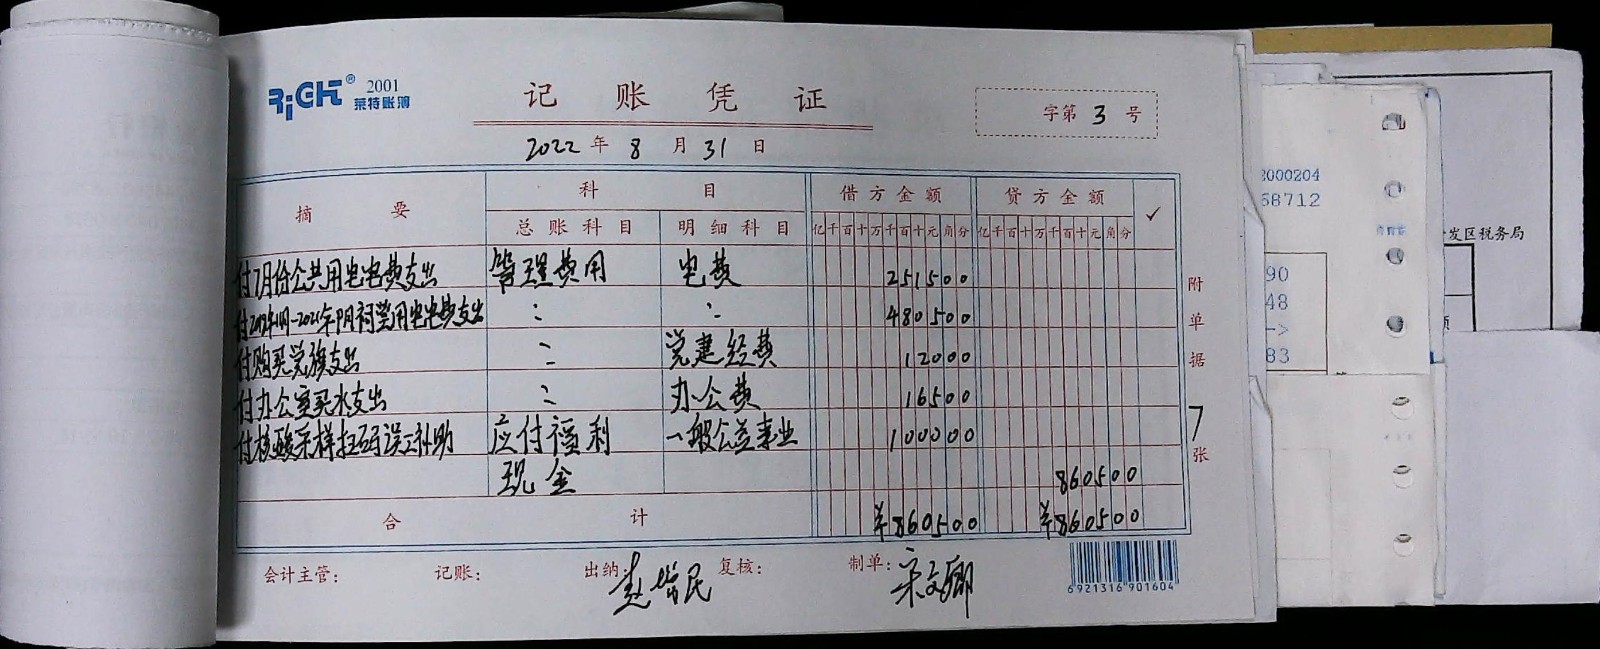 RiGHT® 2001
莱特账簿
记账凭证
字第 3 号
2022 年 8 月 31 日
摘要 科目 借方金额 贷方金额 ✓
总账科目 明细科目 亿千百十万千百十元角分 亿千百十万千百十元角分
付7月份公共用电电费支出 管理费用 电费 251500
用电电费支出 〃 〃 480500
付购买党旗支出 〃 党建经费 12000
付办公室买水支出 〃 办公费 16500
付核酸采样扫码误工补助 应付福利 一般公益事业 100000
现金 860500
合计 ¥860500 ¥860500
附单据 7 张
会计主管: 记账: 出纳: 赵增民 复核: 制单: 宋文卿
6921316901604
2000204
68712
发区税务局
90
48
->
83